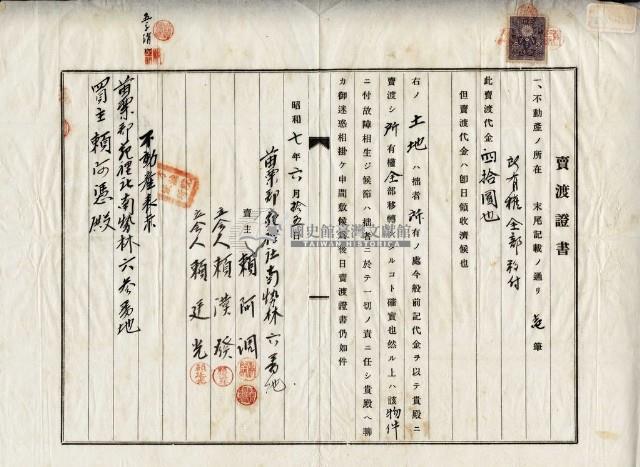 賣渡證書
一、不動産ノ所在 末尾記載ノ通リ 壱筆
所有權全部移付
此賣渡代金四拾圓也
但賣渡代金ハ即日領收濟候也
右ノ土地ハ拙者所有ノ處今般前記代金ヲ以テ貴殿ニ
賣渡シ所有權全部移轉シタルコト確實也然ル上ハ該物件
ニ付故障相生ジ候節ハ拙者ニ於テ一切ノ責ニ任シ貴殿ヘ聊
カ御迷惑相掛ケ申間敷候爲後日賣渡證書仍如件
昭和七年六月拾五日
苗栗郡苑裡社南勢林六番地
賣主 賴阿調
仝人 賴漢發
仝人 賴廷光
不動產表示
苗栗郡苑裡社南勢林六叁番地
買主 賴阿憑殿
國史館臺灣文獻館
TAIWAN HISTORICA